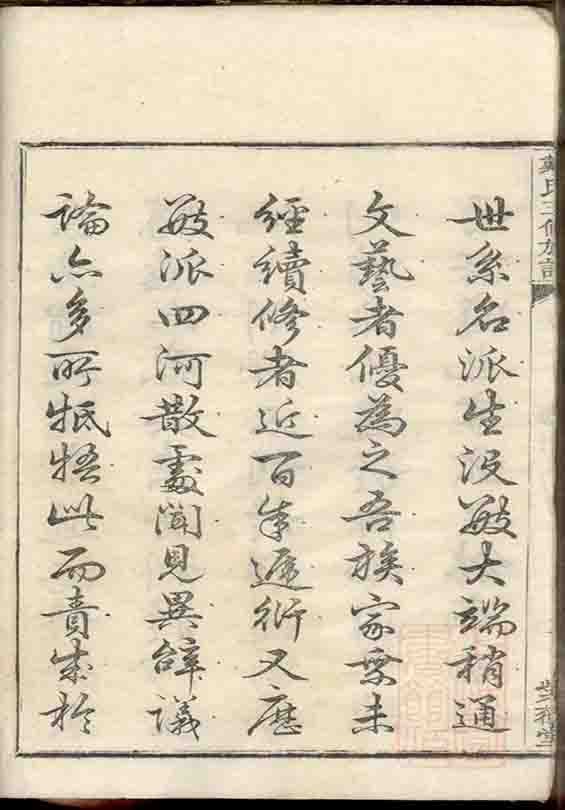 氏三修族譜
世系名派生沒數大端稍通
文藝者優為之吾族家乘未
經續修者近百年遞衍又歷
數派四河散處聞見異辭議
論亦多所牴牾此而責成於